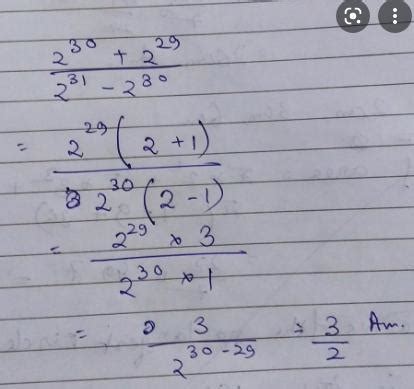 2^30 + 2^29
2^31 - 2^30
= 2^29 ( 2 + 1 )
2^30 ( 2 - 1 )
= 2^29 × 3
2^30 × 1
= 3 = 3 Am.
2^30-29 2